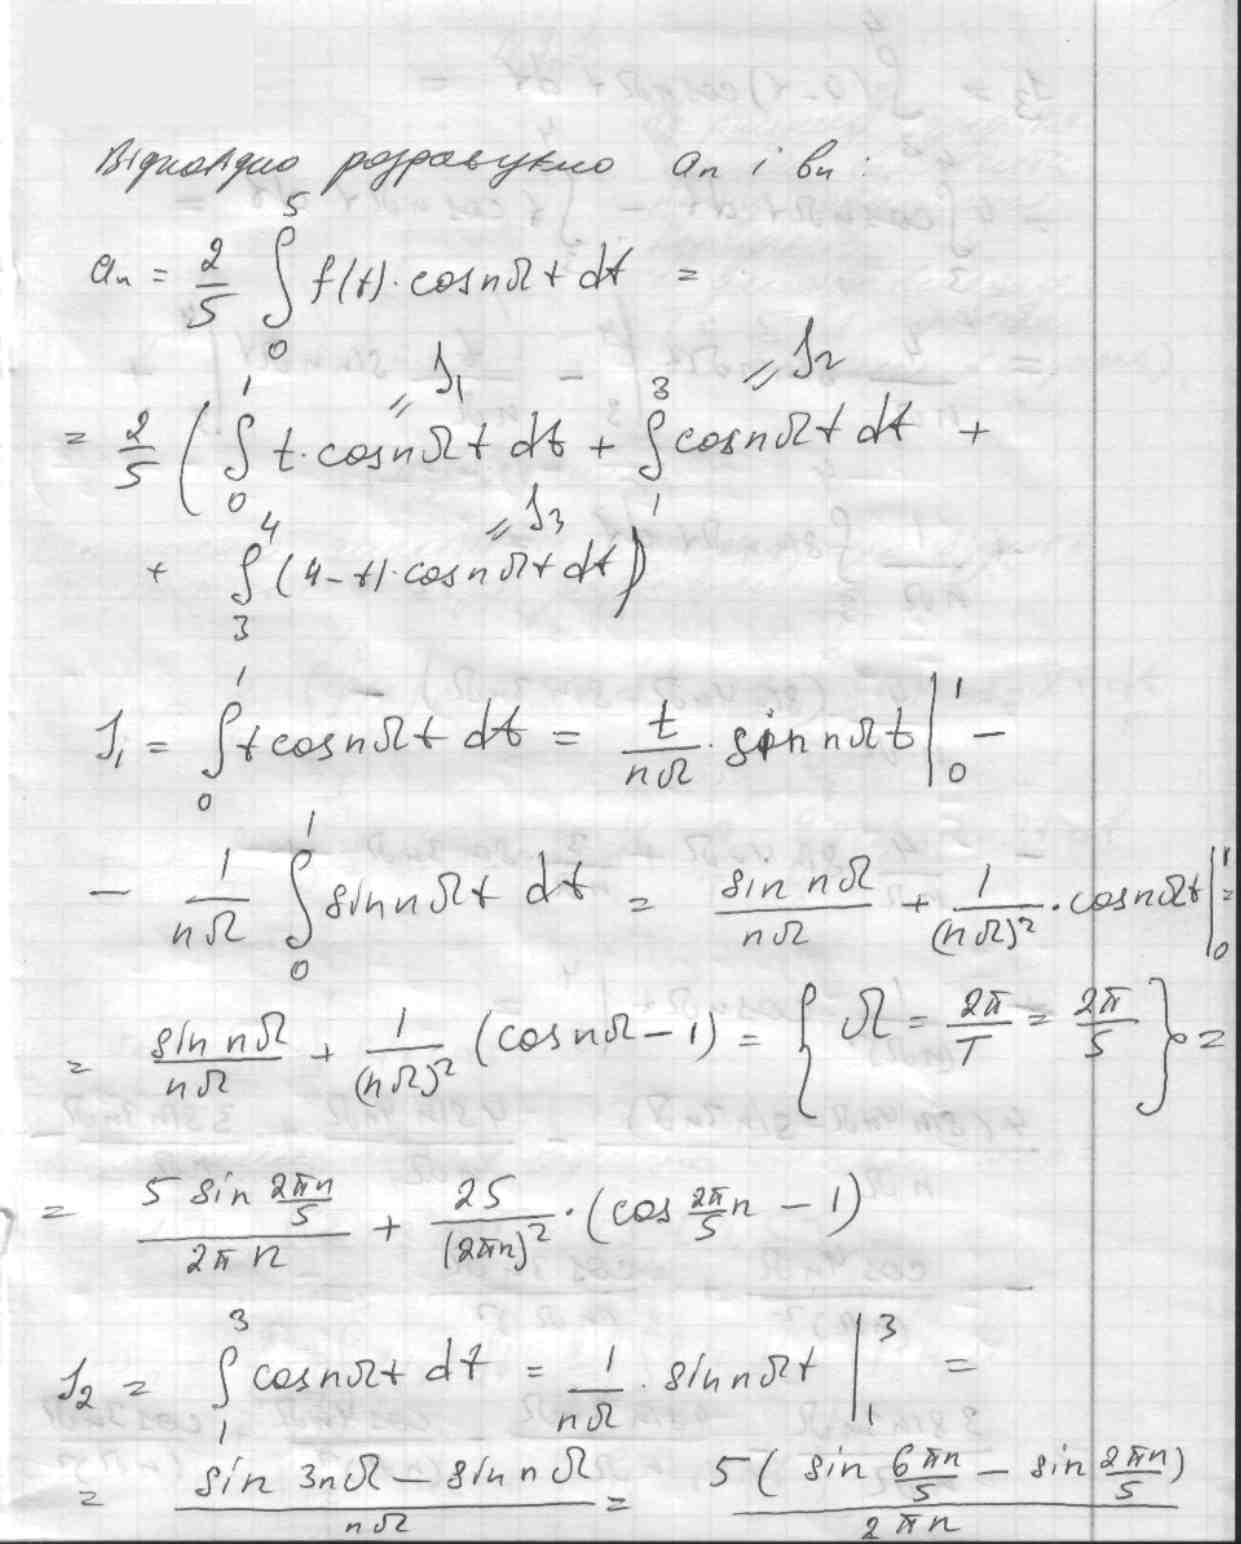 Відповідно розрахуємо aₙ і bₙ :
aₙ = 2/5 ∫₀⁵ f(t)·cos nΩt dt =
= 2/5 ( ∫₀¹ t·cos nΩt dt + ∫₁³ cos nΩt dt +
= J₁ = J₂
+ ∫₃⁴ (4-t)·cos nΩt dt)
= J₃
J₁ = ∫₀¹ t cos nΩt dt = t/(nΩ) · sin nΩt |₀¹ −
− 1/(nΩ) ∫₀¹ sin nΩt dt = sin nΩ/(nΩ) + 1/(nΩ)² · cos nΩt |₀¹ =
= sin nΩ/(nΩ) + 1/(nΩ)² (cos nΩ − 1) = { Ω = 2π/T = 2π/5 } =
= 5 sin 2πn/5 / (2πn) + 25/(2πn)² · (cos 2π/5 n − 1)
J₂ = ∫₁³ cos nΩt dt = 1/(nΩ) · sin nΩt |₁³ =
= (sin 3nΩ − sin nΩ)/(nΩ) = 5( sin 6πn/5 − sin 2πn/5 )/(2πn)